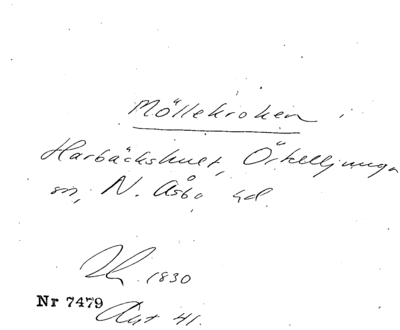 Möllekroken i
Harbäckshult, Örkelljunga
sn, N. Åsbo hd.
1830
Nr 7479
Aut 41.